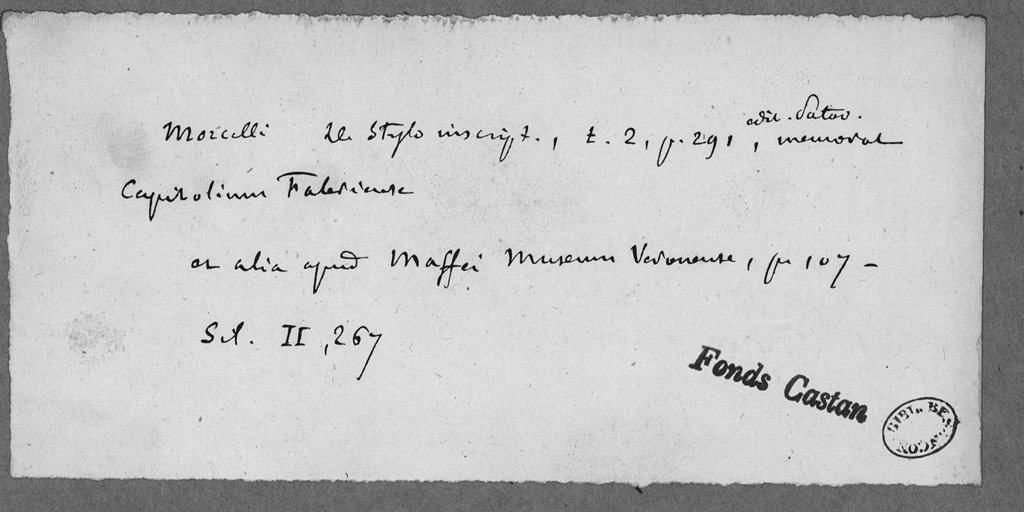 edit. Patav.
Morcelli De Stylo inscript., t. 2, p. 291, memorat
Capitolium Faleriense
et alia apud Maffei Museum Veronense, p. 107 –
Sil. II, 267
Fonds Castan
BIBL. BESANCON